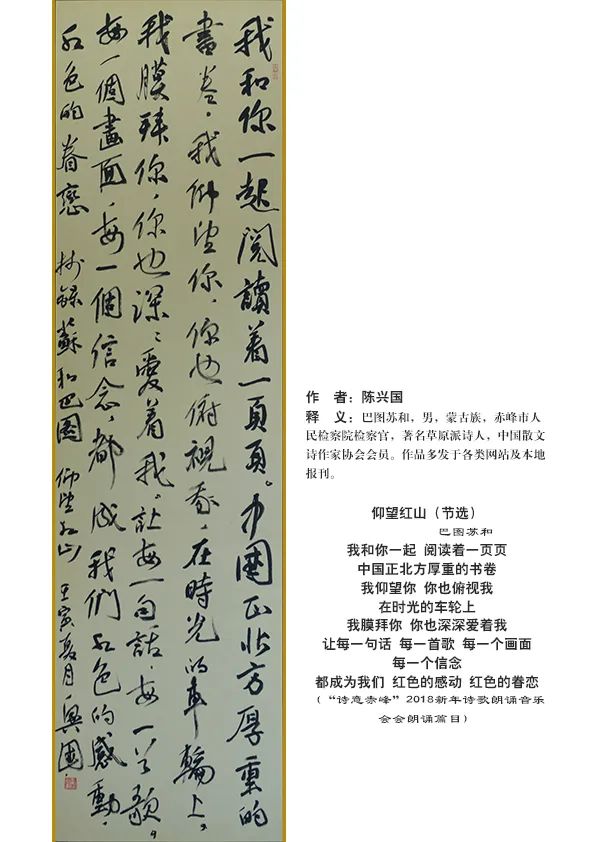 我和你一起閱讀着一頁頁。中國正北方厚重的
書卷，我仰望你，你也俯視我，在時光的車輪上。
我膜拜你，你也深々愛着我。让每一句話，每一首歌。
每一個畫面，每一個信念，都成我們红色的感動，
红色的眷戀 錄蘇和巴圖 仰望红山 壬寅夏月 興國
作 者：陈兴国
释 义：巴图苏和，男，蒙古族，赤峰市人
民检察院检察官，著名草原派诗人，中国散文
诗作家协会会员。作品多发于各类网站及本地
报刊。
仰望红山（节选）
巴图苏和
我和你一起 阅读着一页页
中国正北方厚重的书卷
我仰望你 你也俯视我
在时光的车轮上
我膜拜你 你也深深爱着我
让每一句话 每一首歌 每一个画面
每一个信念
都成为我们 红色的感动 红色的眷恋
（“诗意赤峰”2018新年诗歌朗诵音乐
会会朗诵篇目）